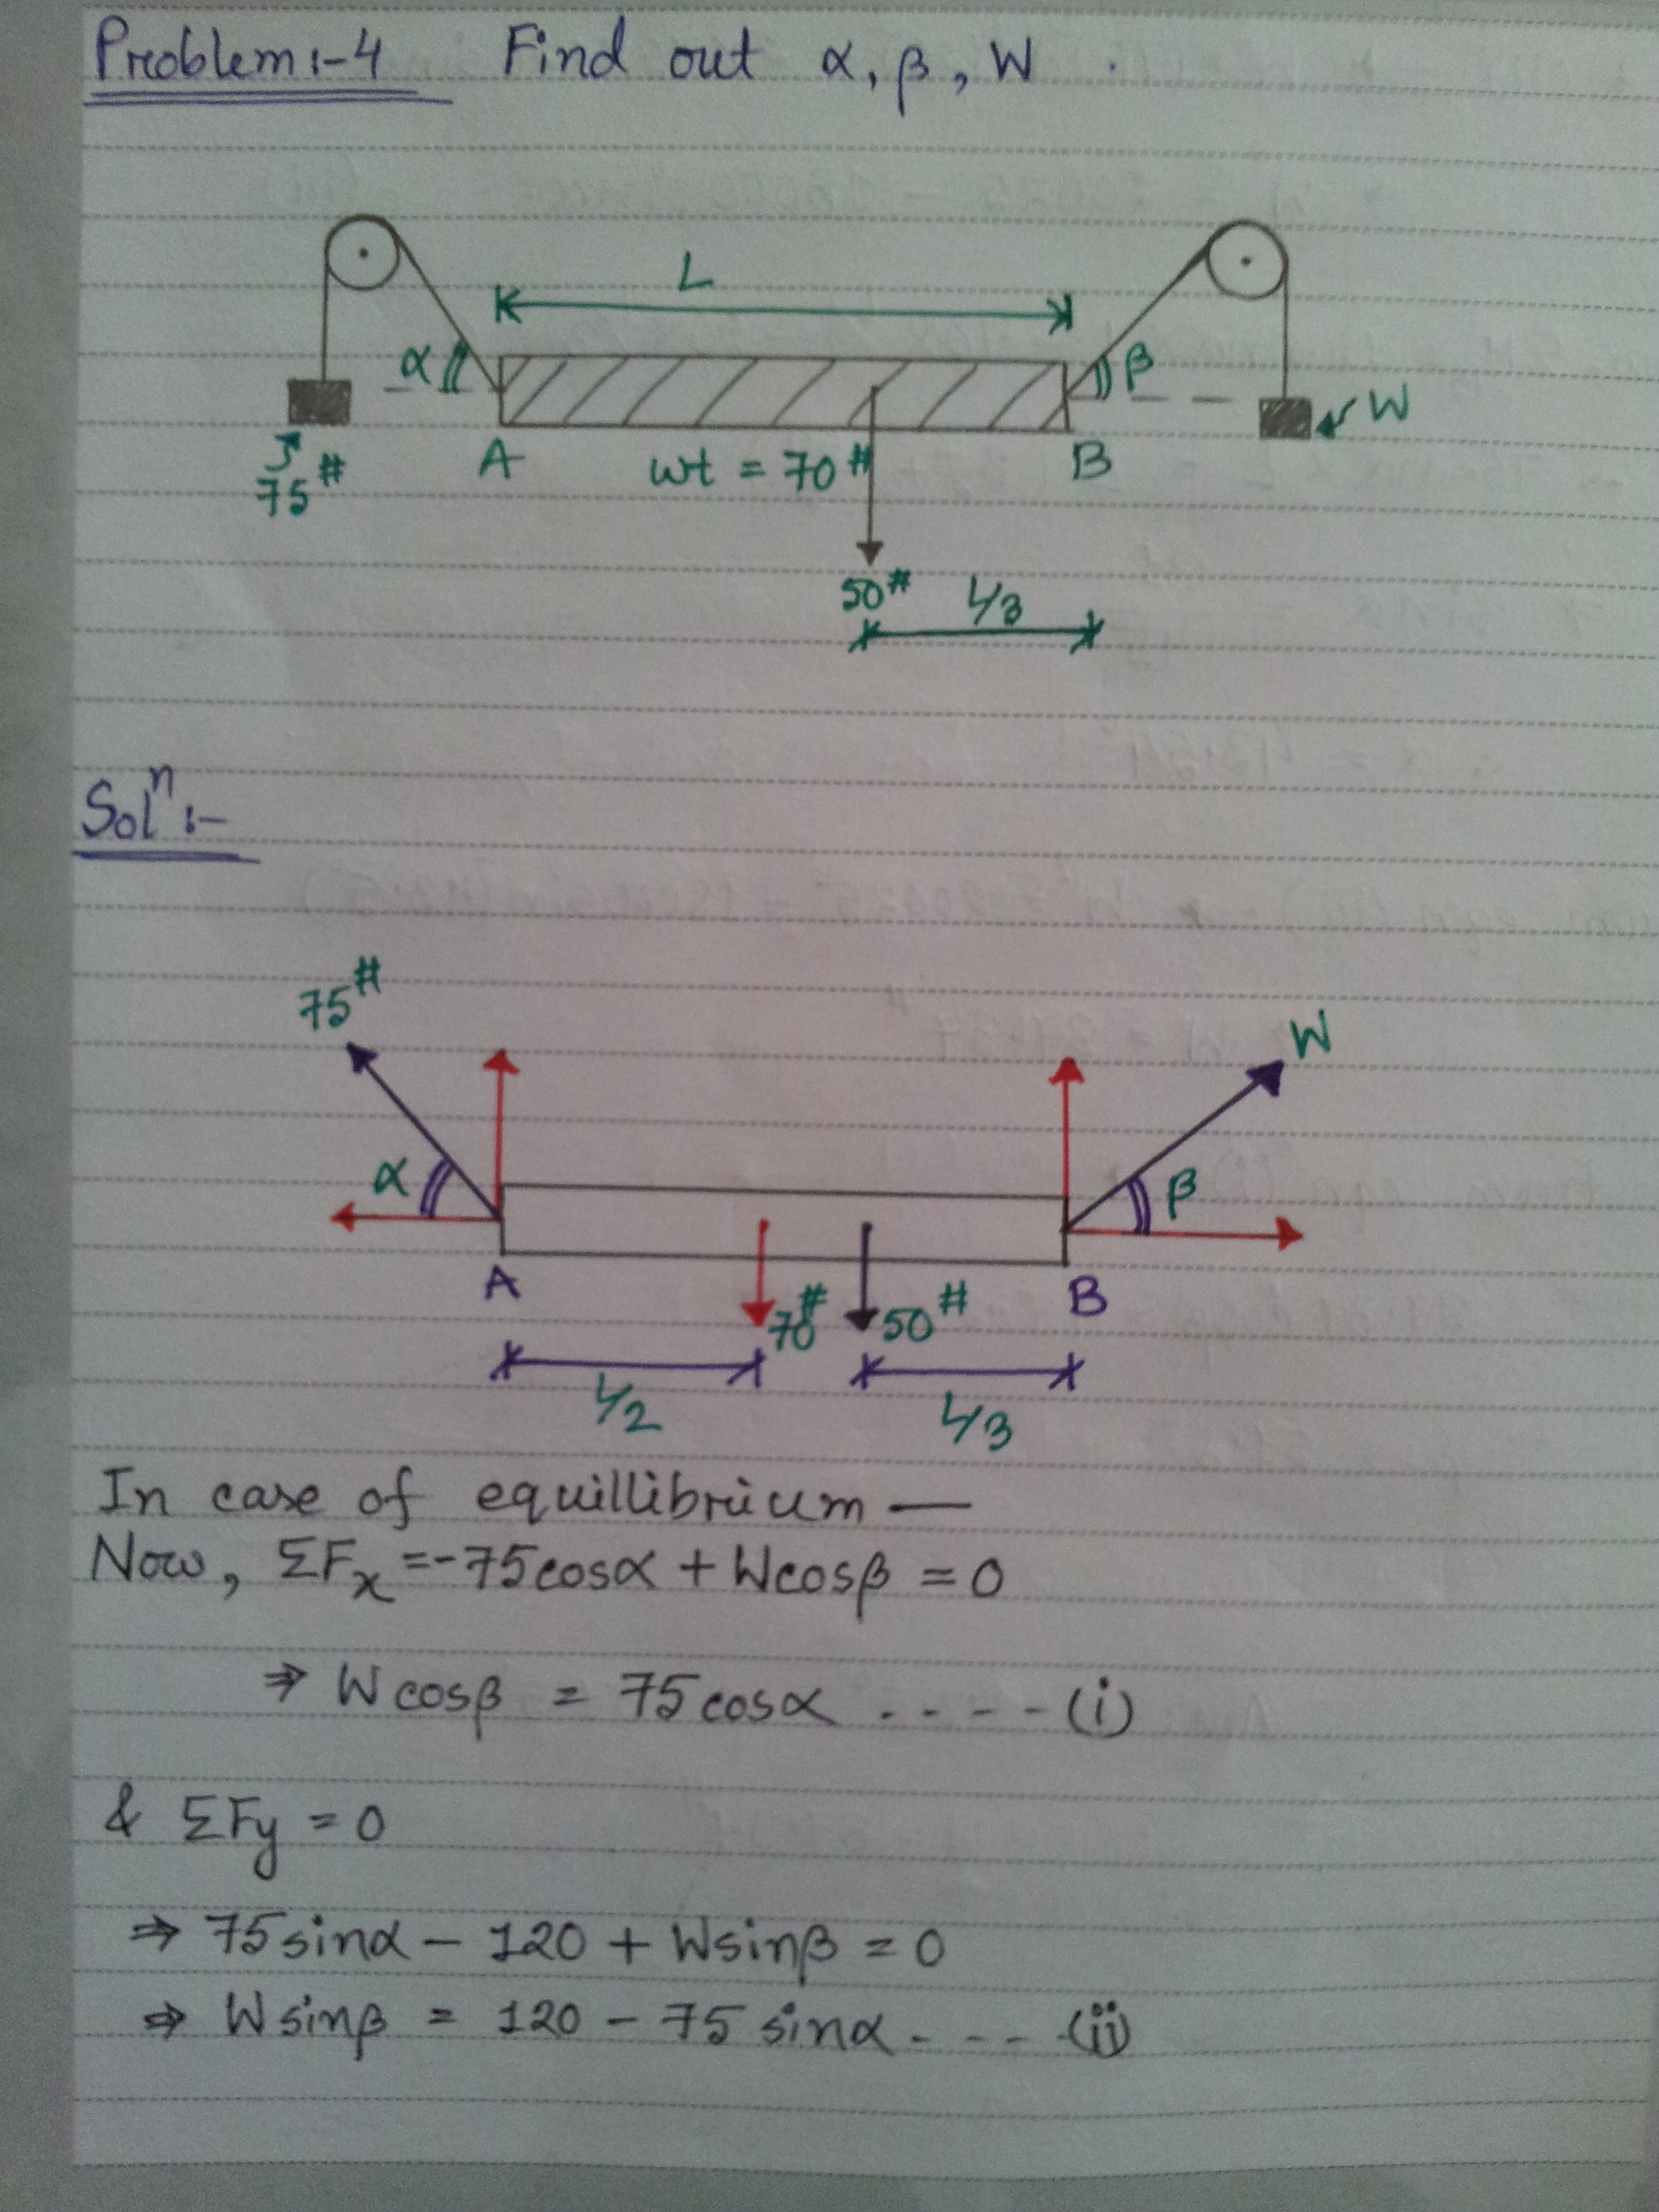 Problem:-4 Find out α, β, W .
L
α
β
W
75#
A
wt = 70#
B
50#
L/3
Solⁿ:-
75#
W
α
β
A
B
70#
50#
L/2
L/3
In case of equillibrium —
Now, ΣFx =-75cosα + Wcosβ = 0
⇒ W cosβ = 75 cosα ..... (i)
& ΣFy = 0
⇒ 75 sinα - 120 + W sinβ = 0
⇒ W sinβ = 120 - 75 sinα .... (ii)